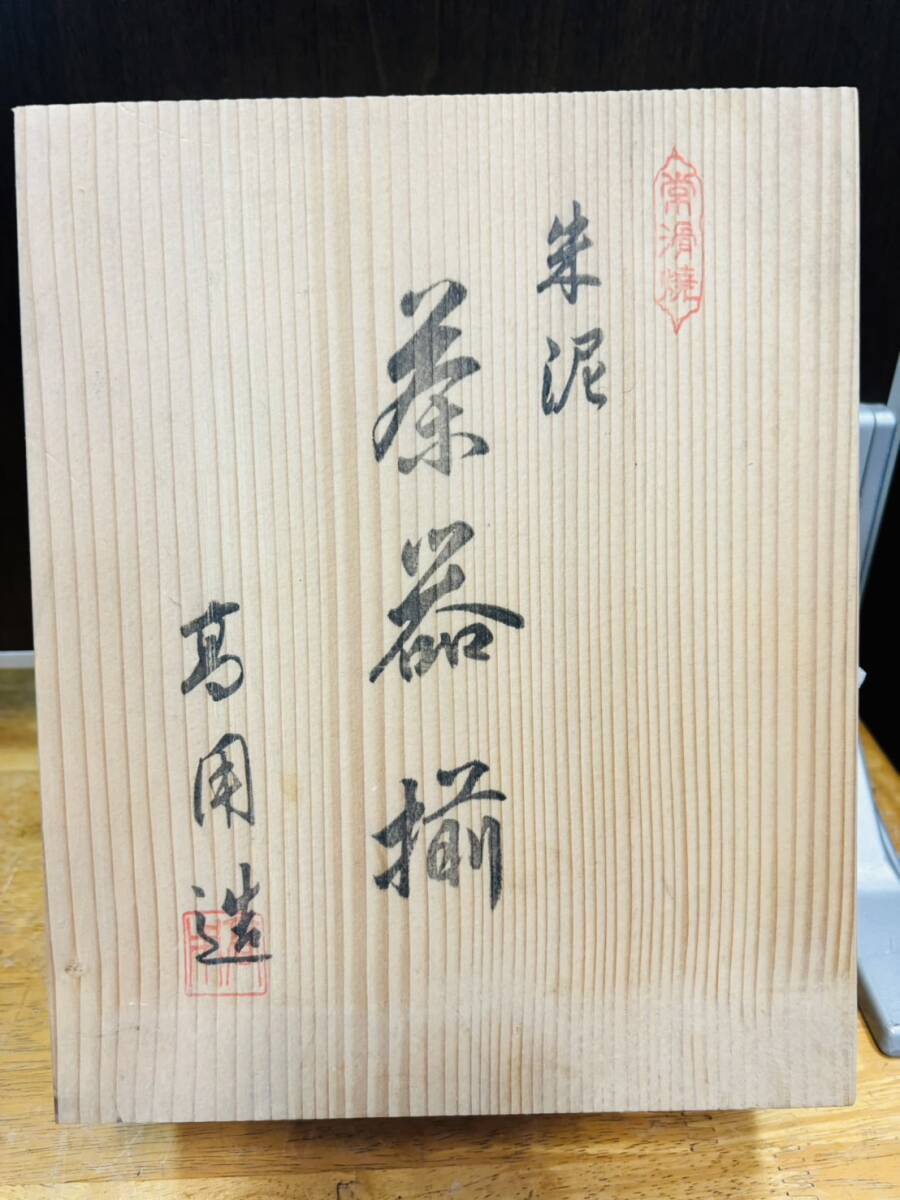 常滑焼
朱泥
茶器揃
高用造